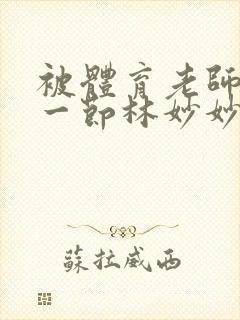 被體育老師
一節林妙妙
蘇拉威西